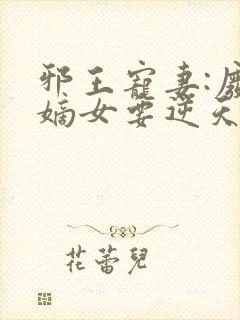 邪王寵妻:廢
嫡女要逆天
花蕾兒